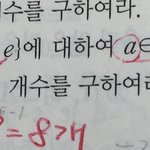 수를 구하여라.
e}에 대하여 a∈
개수를 구하여라
= 8개